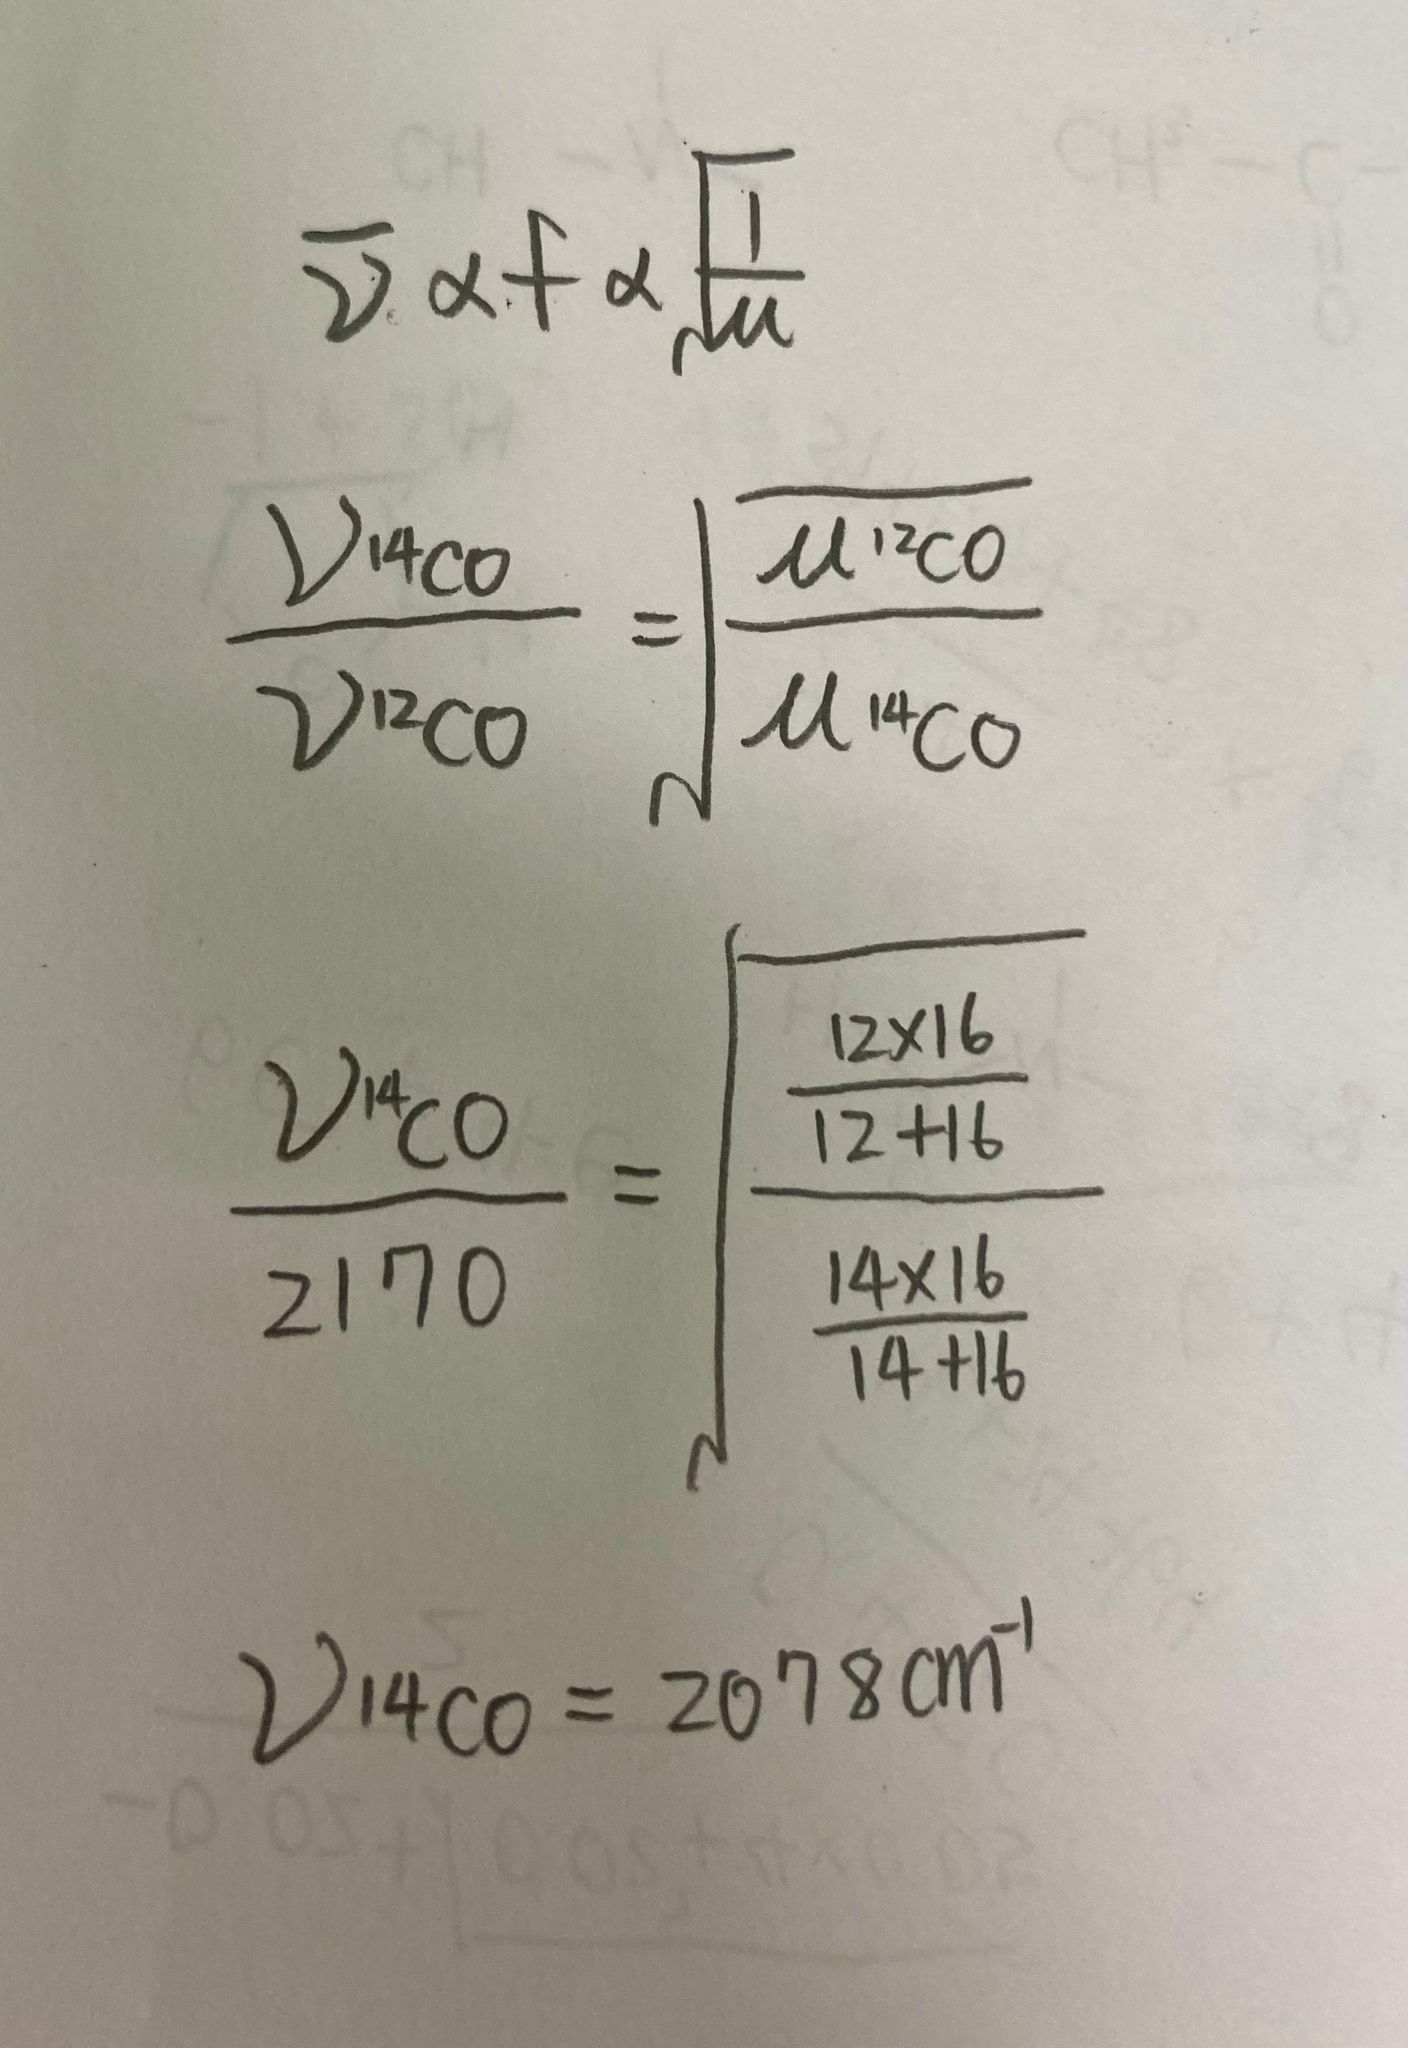 ν̅ α f α √(1/μ)
ν14CO / ν12CO = √(μ12CO / μ14CO)
ν14CO / 2170 = √((12×16 / 12+16) / (14×16 / 14+16))
ν14CO = 2078 cm⁻¹